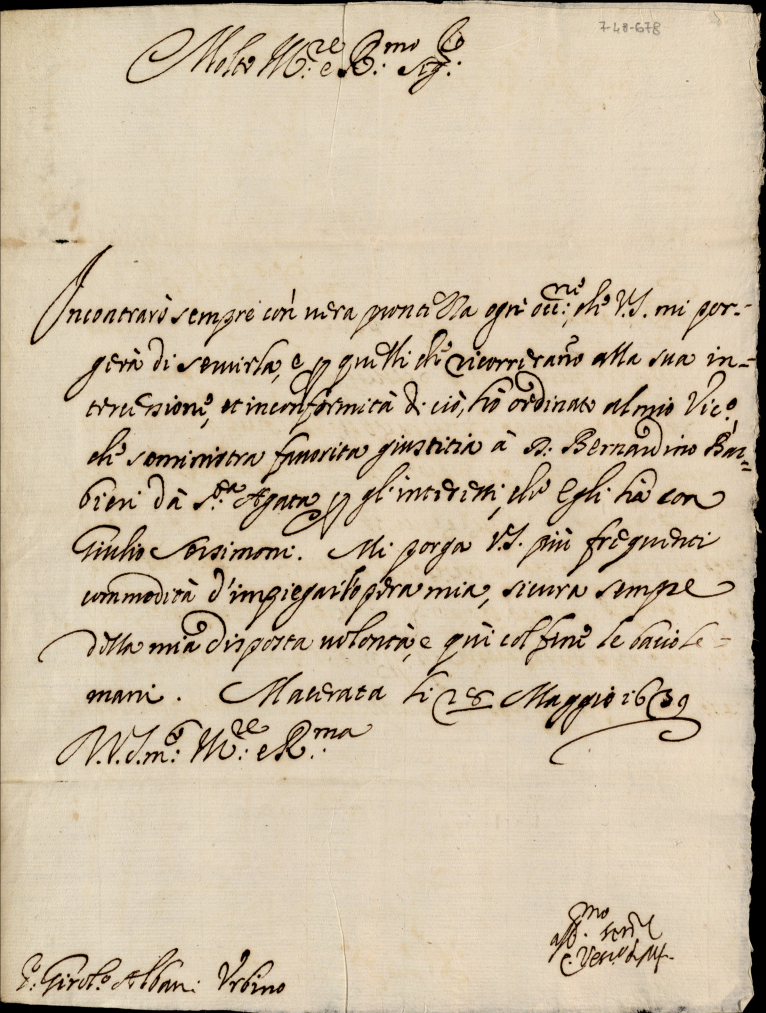 7-48-678
Molto Ill.re e R.mo Sig.r
Incontrarò sempre con vera prontezza ogni occ.ne, che V.S. mi por=
gerà di servirla, e p quelli che ricorrerano alla sua in=
tercessione, et in conformità di ciò, hò ordinato al mio Vic.o,
che seministra favorita giustitia à D. Bernardino Bar=
bieri dà S.ta Agata p gl'interessi, che Egli hà con
Giulio Sersimoni. Mi porga V.S. più frequenti
commodità d'impiegar l'opera mia, sicura sempre
della mia disposta volontà, e quì col fine le bacio le
mani. Macerata li 28 Maggio 1639
D.V.S. m.o Ill.re e R.ma
aff.mo ser.re
Il Vesc.o di M.
S.r Girol.o Albani Urbino